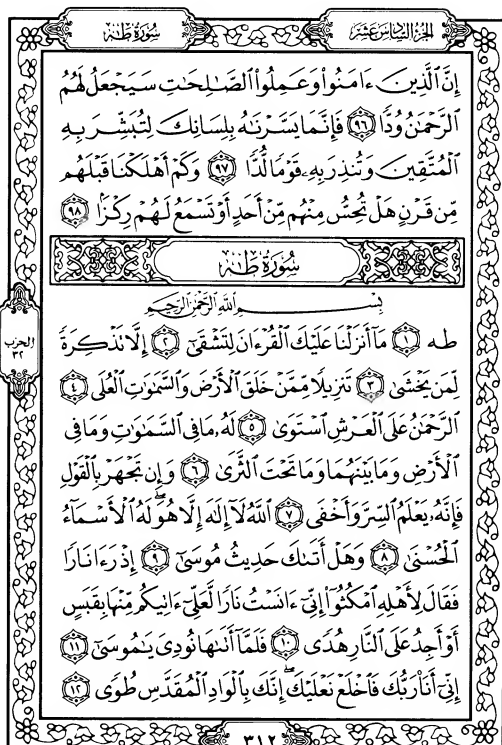 الجزء السادس عشر
سورة طه
إِنَّ ٱلَّذِينَ ءَامَنُوا۟ وَعَمِلُوا۟ ٱلصَّٰلِحَٰتِ سَيَجْعَلُ لَهُمُ
ٱلرَّحْمَٰنُ وُدًّا ٩٦ فَإِنَّمَا يَسَّرْنَٰهُ بِلِسَانِكَ لِتُبَشِّرَ بِهِ
ٱلْمُتَّقِينَ وَتُنذِرَ بِهِۦ قَوْمًا لُّدًّا ٩٧ وَكَمْ أَهْلَكْنَا قَبْلَهُم
مِّن قَرْنٍ هَلْ تُحِسُّ مِنْهُم مِّنْ أَحَدٍ أَوْ تَسْمَعُ لَهُمْ رِكْزًۢا ٩٨
سُورَةُ طه
بِسْمِ ٱللَّهِ ٱلرَّحْمَٰنِ ٱلرَّحِيمِ
طه ١ مَآ أَنزَلْنَا عَلَيْكَ ٱلْقُرْءَانَ لِتَشْقَىٰٓ ٢ إِلَّا تَذْكِرَةً
لِّمَن يَخْشَىٰ ٣ تَنزِيلًا مِّمَّنْ خَلَقَ ٱلْأَرْضَ وَٱلسَّمَٰوَٰتِ ٱلْعُلَى ٤
ٱلرَّحْمَٰنُ عَلَى ٱلْعَرْشِ ٱسْتَوَىٰ ٥ لَهُۥ مَا فِى ٱلسَّمَٰوَٰتِ وَمَا فِى
ٱلْأَرْضِ وَمَا بَيْنَهُمَا وَمَا تَحْتَ ٱلثَّرَىٰ ٦ وَإِن تَجْهَرْ بِٱلْقَوْلِ
فَإِنَّهُۥ يَعْلَمُ ٱلسِّرَّ وَأَخْفَى ٧ ٱللَّهُ لَآ إِلَٰهَ إِلَّا هُوَۖ لَهُ ٱلْأَسْمَآءُ
ٱلْحُسْنَىٰ ٨ وَهَلْ أَتَىٰكَ حَدِيثُ مُوسَىٰٓ ٩ إِذْ رَءَا نَارًا
فَقَالَ لِأَهْلِهِ ٱمْكُثُوٓا۟ إِنِّىٓ ءَانَسْتُ نَارًا لَّعَلِّىٓ ءَاتِيكُم مِّنْهَا بِقَبَسٍ
أَوْ أَجِدُ عَلَى ٱلنَّارِ هُدًى ١٠ فَلَمَّآ أَتَىٰهَا نُودِىَ يَٰمُوسَىٰٓ ١١
إِنِّىٓ أَنَا۠ رَبُّكَ فَٱخْلَعْ نَعْلَيْكَۖ إِنَّكَ بِٱلْوَادِ ٱلْمُقَدَّسِ طُوًى ١٢
الحزب
٣٢
٣١٢